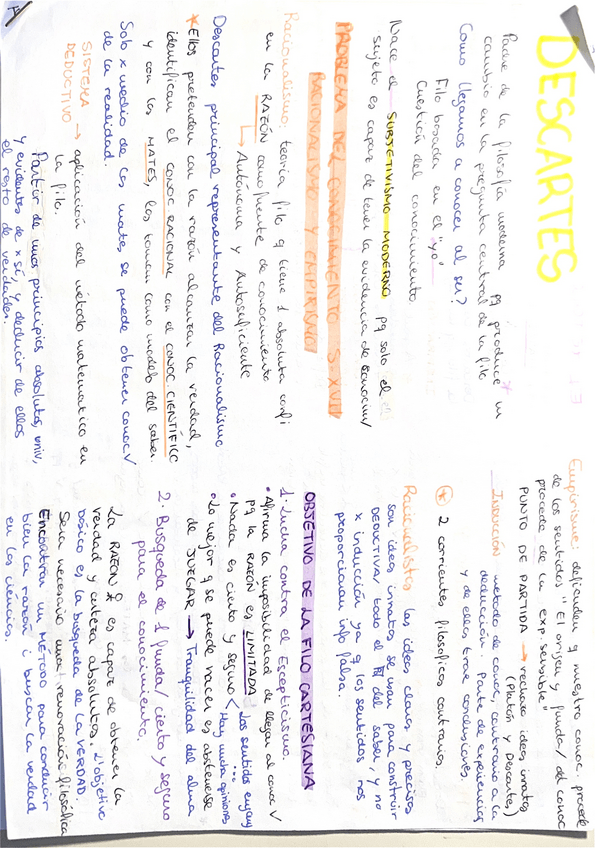 DESCARTES
Padre de la filosofía moderna pq produce un
cambio en la pregunta central de la filo
Como llegamos a conocer al ser?
Filo basada en el "yo"
Cuestión del conocimiento
Nace el SUBJETIVISMO MODERNO pq solo el
sujeto es capaz de tener la evidencia de conocim/
PROBLEMA DEL CONOCIMIENTO S. XVII
RACIONALISMO Y EMPIRISMO
Racionalismo: teoría filo q tiene 1 absoluta confi
en la RAZÓN como fuente de conocimiento
↳ Autónoma y Autosuficiente
Descartes principal representante del Racionalismo
*Ellos pretenden con la razón alcanzar la verdad,
identifican el CONOC RACIONAL con el CONOC. CIENTÍFICO
y con las MATES, las toman como modelo del saber.
Solo x medio de las mates se puede obtener conoc V
de la realidad.
SISTEMA
DEDUCTIVO → aplicación del método matemático en
la filo.
Partir de unos principios absolutos, univ,
y evidentes de x sí, y deducir de ellos
el resto de verdades.
Empirisme: defienden q nuestro conoc. procede
de los sentidos "El origen y funda/ del conoc
procede de la exp. sensible"
PUNTO DE PARTIDA → rechazo ideas innatas
(Platón y Descartes)
INDUCCIÓN método de conoc, contrario a la
deducción. Parte de experiencias
y de ellas trae conclusiones.
* 2 corrientes filosóficas contrarias.
Racionalistas las ideas claras y precisas
son ideas innatas se usan para construir
DEDUCTIVA/ todo el del saber, y no
x inducción ya q los sentidos nos
proporcionan info falsa.
OBJETIVO DE LA FILO CARTESIANA
1. Lucha contra el Escepticismo.
• Afirma la imposibilidad de llegar al conoc V
pq la RAZÓN es LIMITADA
• Nada es cierto y seguro < Los sentido engañ
Hay mucha opinions
...
• Lo mejor q se puede hacer es abstenerse
de JUZGAR → Tranquilidad del alma
2. Busqueda de 1 funda/ cierto y seguro
para el conocimiento.
La RAZÓN es capaz de obtener la
verdad y certeza absolutas. L'objetivo
básico es la busqueda de la VERDAD
Sera necesario una renovación filosófica
Encontrar un MÉTODO para conducir
bien la razón i buscar la verdad
en las ciencias.